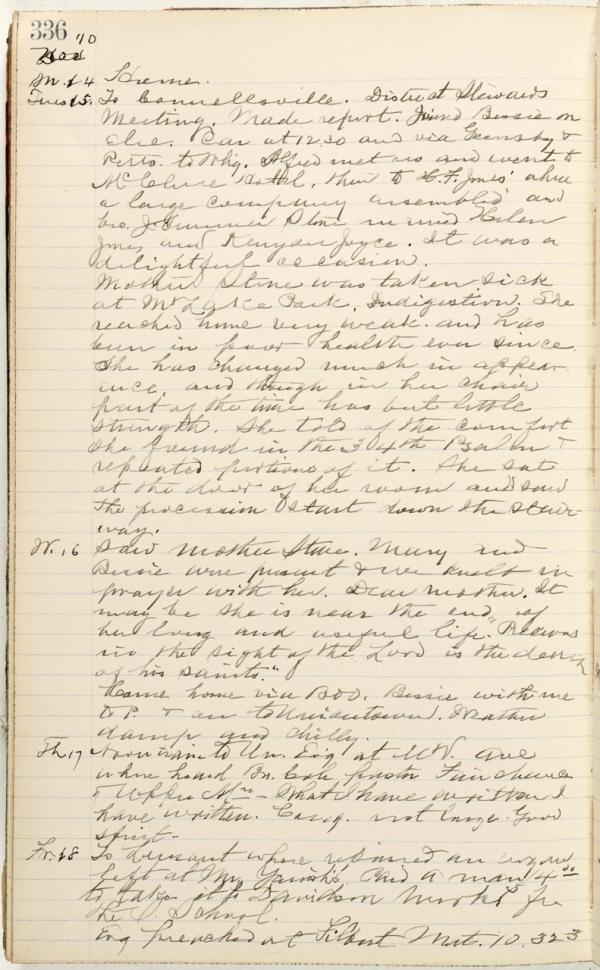 336
'10
M. 14 Home.
Tues 15. To Connellsville. District Stewards
Meeting. Made report. Joined Bessie on
Elec. Car at 12.30 and via Greensbg &
Pitts. to Whg. Alfred met us and went to
McClure Hotel, then to C. F. Jones' where
a large company assembled and
bro. J. Sumner Stone married Helen
Jones and Kenyon Joyce. It was a
delightful occasion.
Mother Stone was taken sick
at Mt Lake Park. Indigestion. She
reached home very weak. and has
been in poor health ever since.
She has changed much in appear-
ance, and though in her chair
part of the time has but little
strength. She told of the comfort
she found in the 34th Psalm &
repeated portions of it. She sat
at the door of her room and saw
the procession start down the stair-
way.
W. 16 Saw mother Stone. Mary and
Bessie were present & we knelt in
prayer with her. Dear mother. It
may be she is near the end of
her long and useful life. "Precious
in the sight of the Lord is the death
of his saints."
Came home via B&O. Bessie with me
to P. & on to Uniontown. Weather
damp and chilly.
Th 17 Noon train to Un. Eve at
where heard Bro. Cole, pastor Fairchance
& - What I have written I
have written. Cong. not large. Good
spirit.
Fr. 18 To where an organ
left at Mr. Paid a man 4
to take it to Davidson Works for
the S. School.
Eve preached at Mat. 10. 32 3